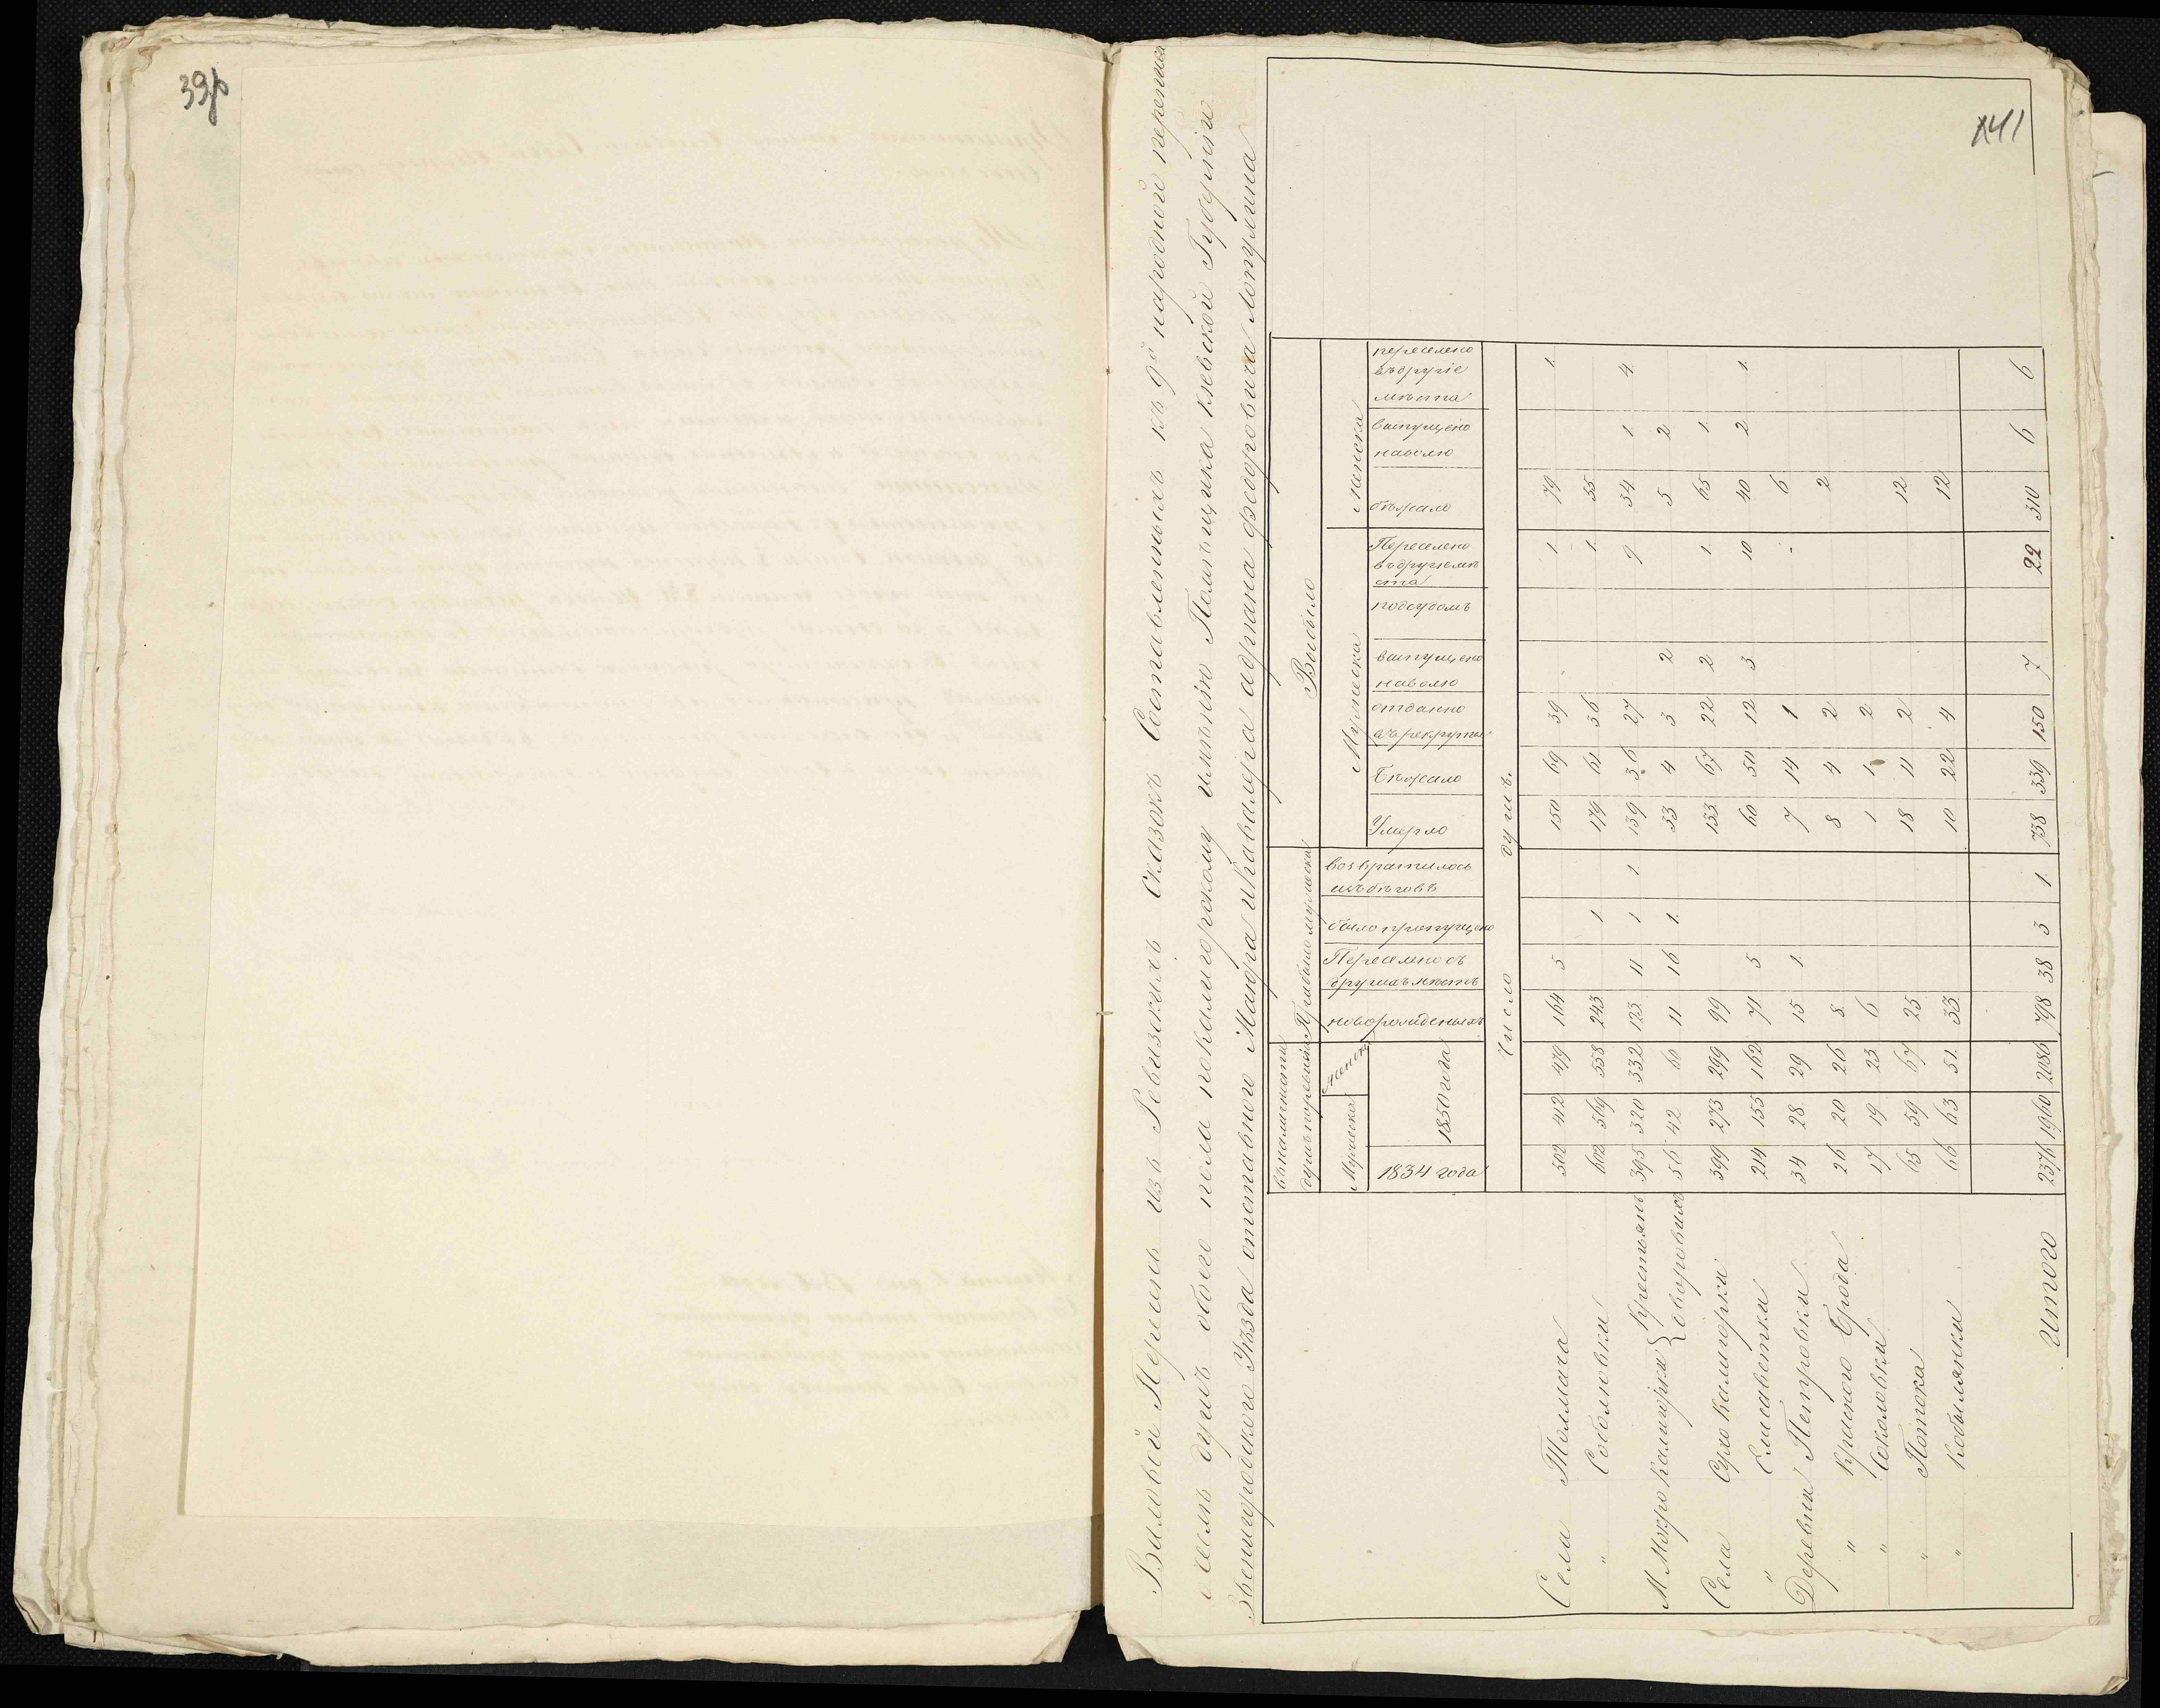 39р
141
Валовый Перечень изъ Ревизскихъ Сказокъ Составленныхъ къ 9й народной переписи
о семъ душъ обоего пола по Калигорскому имѣнію Помѣщика Кіевской Губерніи
Звенигородскаго Уѣзда отставного Маіора и Кавалера Адріана Федоровича Лопухина
въ наличности душъ по ревизіи | Прибыло мужеска | Выбыло
Мужеска | Женска | новорожденныхъ | Переселено съ другихъ мѣстъ | было пропущено | возвратилось изъ бѣговъ | Мужеска | Женска
1834 года | 1850 года | Умерло | Бѣжало | отданно въ рекруты | выпущено на волю | подсудомъ | Переселено въ другіе мѣста | бѣжало | выпущено на волю | переселено въ другіе мѣста
Число душъ.
Села Толмача 502 412 479 164 5 150 69 39 1 79 1
" Соболювки 602 569 558 243 1 179 61 36 1 55
М. Мокро Калигорки { Крестьянъ 395 320 332 123 11 1 1 139 36 27 9 34 1 4
{ дворовыхъ 56 42 60 11 16 1 33 4 3 2 5 2
Села Сухо Калигорки 399 273 299 99 133 67 22 2 1 65 1
" Елисаветки 214 155 162 71 5 60 50 12 3 10 40 2 1
Деревни Петровки 34 28 29 15 1 7 14 1 - 6
" Краснаго Брода 26 20 26 8 8 4 2 2
" Соколовки 17 19 23 6 1 1 2
" Потока 65 59 67 25 18 11 2 12
" Кобылянки 66 63 51 33 10 22 4 12
Итого 2376 1960 2086 798 38 3 1 738 339 150 7 22 310 6 6